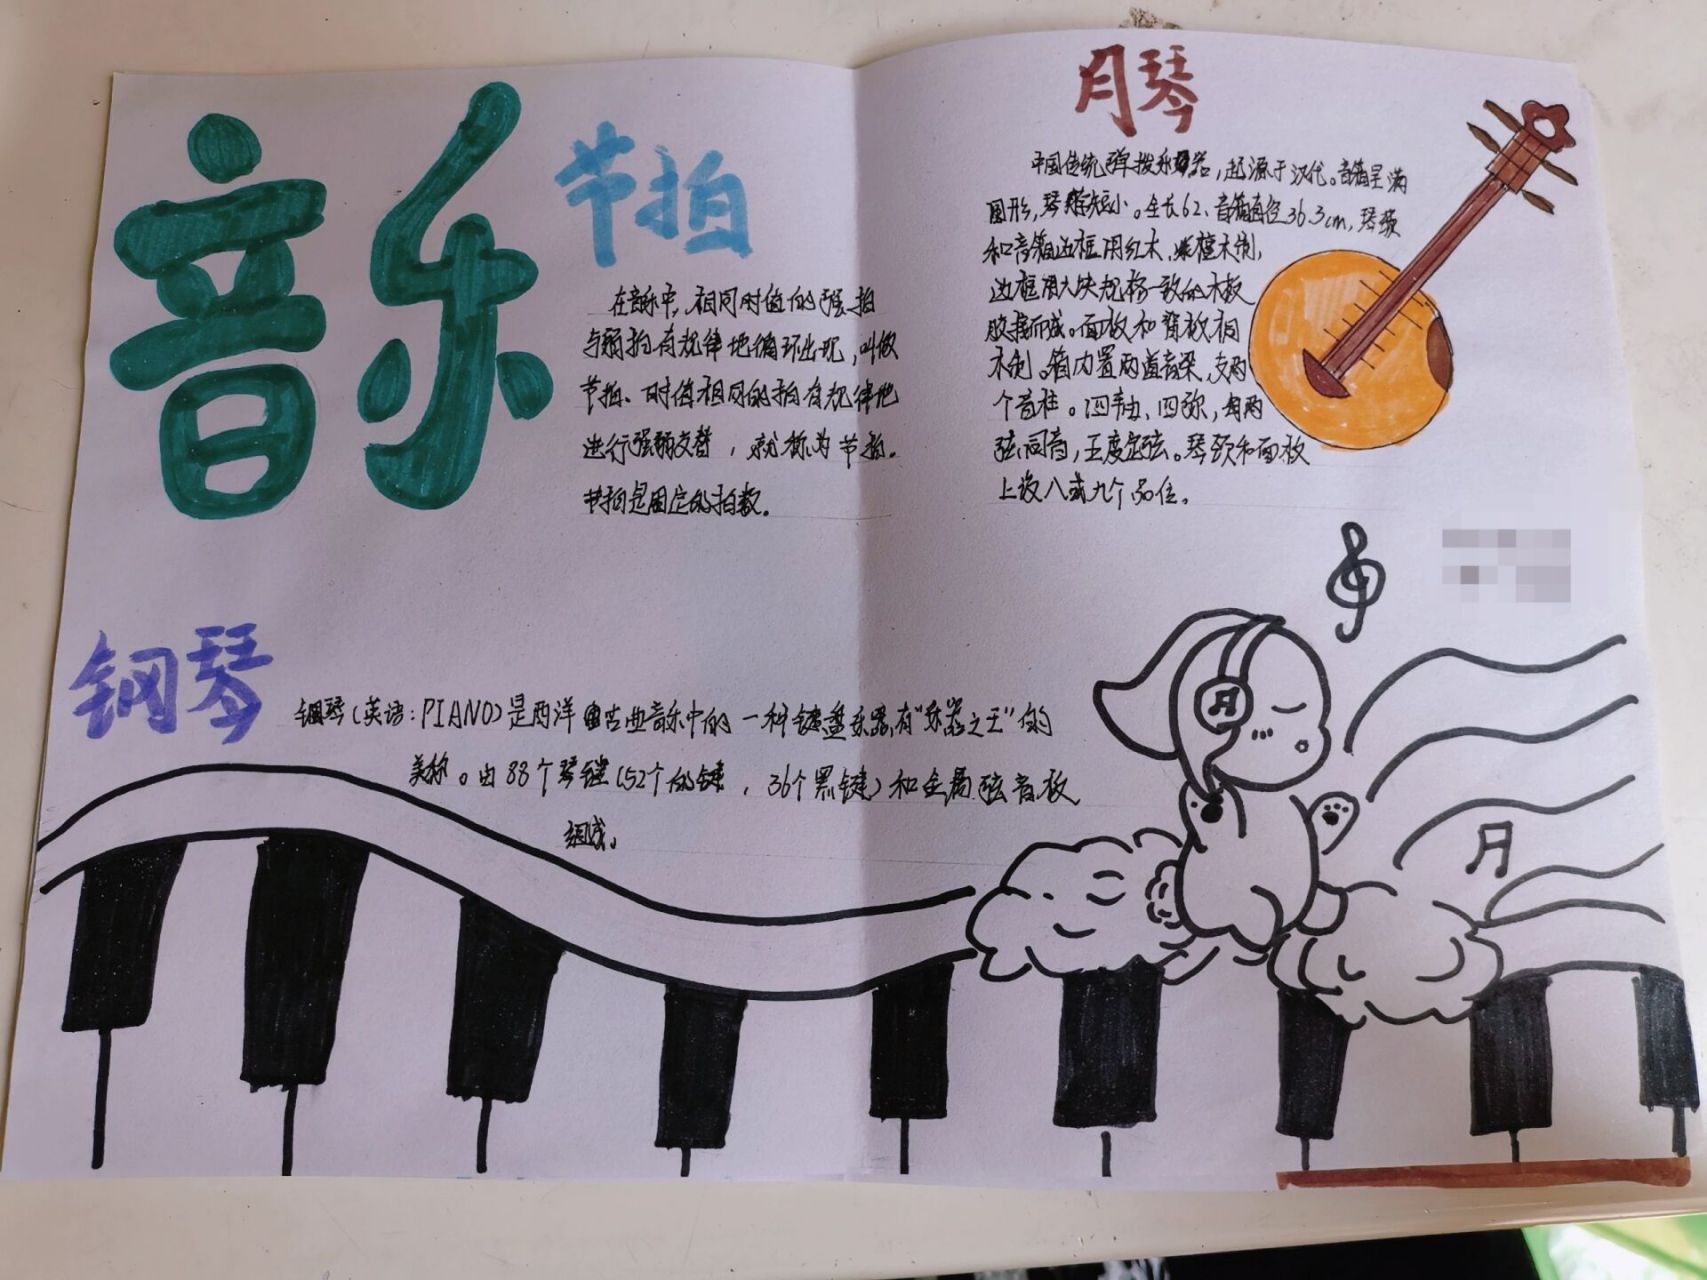 音乐
节拍
在音乐中，相同时值的强拍
与弱拍有规律地循环出现，叫做
节拍、时值相同的拍有规律地
进行强弱交替，就称为节拍。
节拍是固定的拍数。
月琴
中国传统弹拨乐器，起源于汉代。音箱呈满
圆形，琴短小。全长62、音箱直径36.3cm，琴颈
和音箱边框用红木、紫檀木制，
边框用六块规格一致的木板
胶接而成。面板和背板桐
木制。箱内置两道音梁，支两
个音柱。四轴、四弦，每两
弦同音，五度定弦。琴颈和面板
上设八或九个品位。
钢琴
钢琴（英语：PIANO）是西洋古典音乐中的一种键盘乐器，有“乐器之王”的
美称。由88个琴键（52个白键，36个黑键）和金属弦音板
组成。